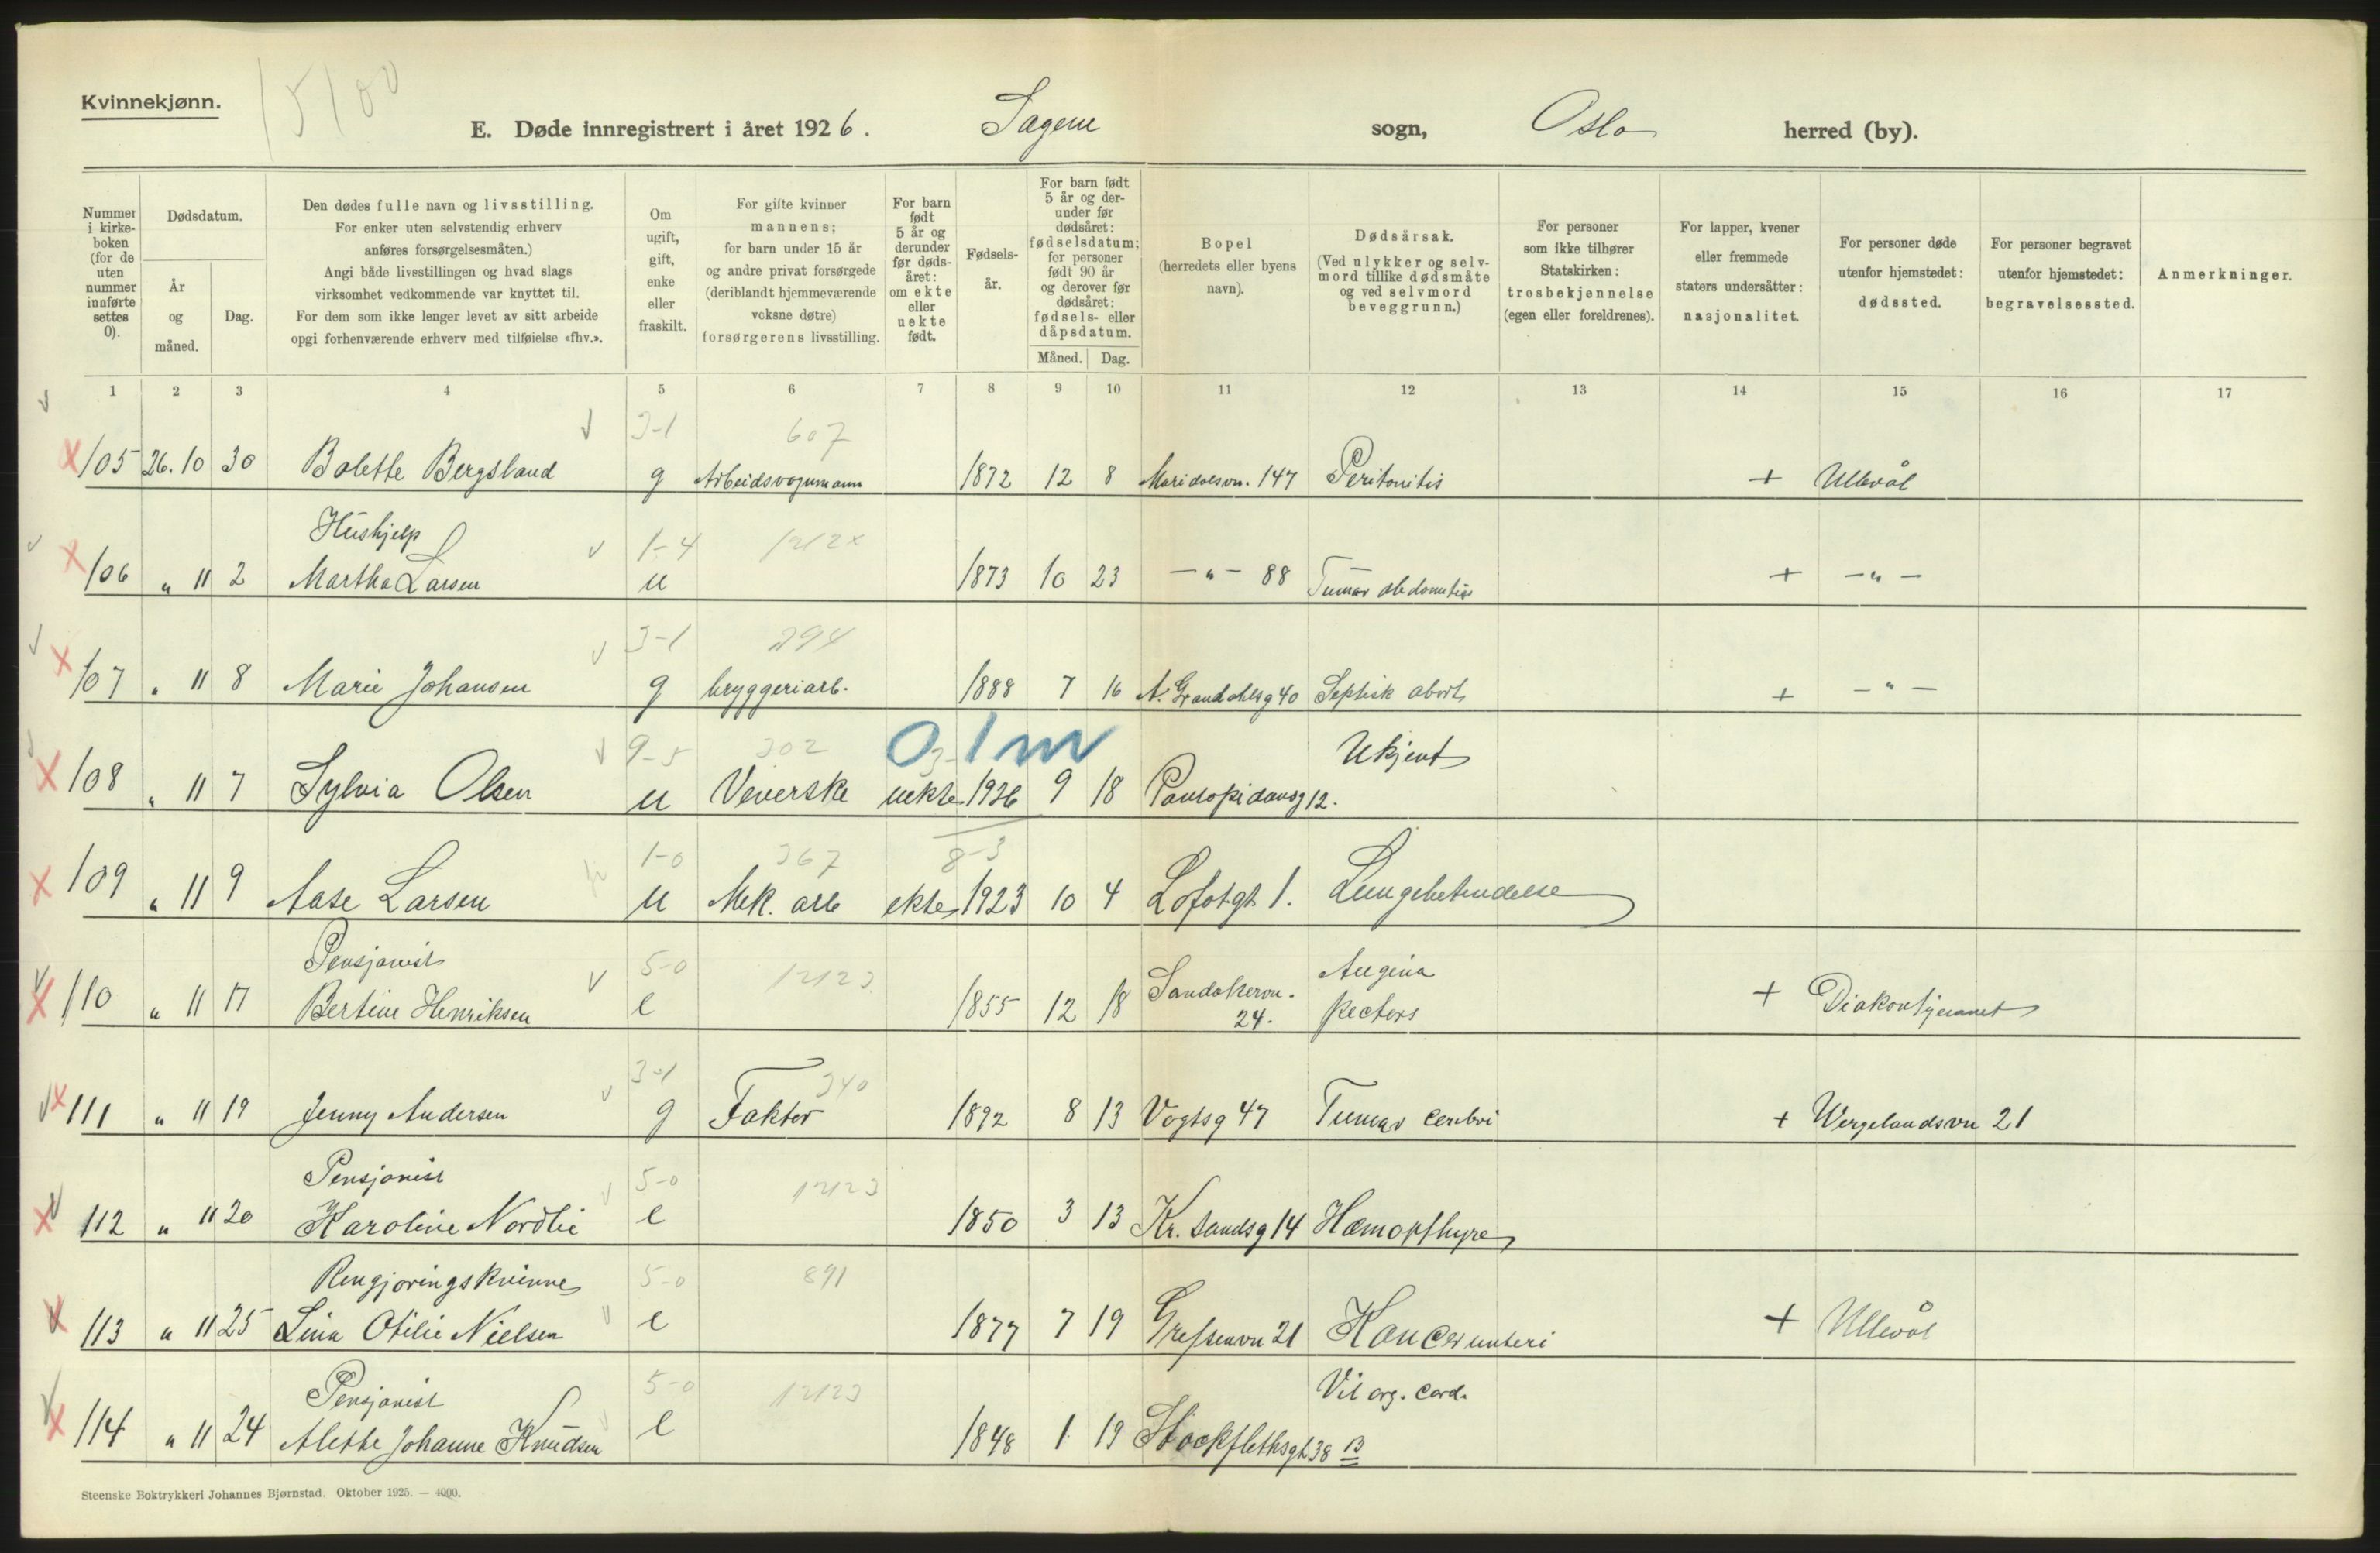 Kvinnekjønn.
15/00
E. Døde innregistrert i året 1926. Sagene sogn, Oslo herred (by).
Nummer i kirkeboken (for de uten nummer innførte settes 0).
Dødsdatum.
År og måned.
Dag.
Den dødes fulle navn og livsstilling.
For enker uten selvstendig erhverv
anføres forsørgelsesmåten.)
Angi både livsstillingen og hvad slags
virksomhet vedkommende var knyttet til.
For dem som ikke lenger levet av sitt arbeide
opgi forhenværende erhverv med tilføielse «fhv.».
Om ugift, gift, enke eller fraskilt.
For gifte kvinner
mannens;
for barn under 15 år
og andre privat forsørgede
(deriblandt hjemmeværende
voksne døtre)
forsørgerens livsstilling.
For barn født 5 år og derunder før dødsåret: om ekte eller uekte født.
Fødselsår.
For barn født 5 år og derunder før dødsåret: fødselsdatum; for personer født 90 år og derover før dødsåret: fødsels- eller dåpsdatum.
Måned. Dag.
Bopel
(herredets eller byens
navn).
Dødsårsak.
(Ved ulykker og selv-
mord tillike dødsmåte
og ved selvmord
beveggrunn.)
For personer
som ikke tilhører
Statskirken:
trosbekjennelse
(egen eller foreldrenes).
For lapper, kvener
eller fremmede
staters undersåtter:
nasjonalitet.
For personer døde
utenfor hjemstedet:
dødssted.
For personer begravet
utenfor hjemstedet:
begravelsessted.
Anmerkninger.
1 2 3 4 5 6 7 8 9 10 11 12 13 14 15 16 17
3-1 607
105 26.10 30 Bolette Bergsland g Arbeidsvognmann 1872 12 8 Maridalsvn. 147 Peritonitis + Ullevål
Hushjelp 1-4 1212x
106 " 11 2 Martha Larsen u 1873 10 23 -"- 88 Tumor abdominis + -"-
3-1 294
107 " 11 8 Marie Johansen g bryggeriarb. 1888 7 16 A. Grandahlsg 40 Septisk abort + -"-
9-5 302 0 3- 1 m Ukjent
108 " 11 7 Sylvia Olsen u Veverske uekte 1926 9 18 Pontopidansg 12.
1-0 367 8-3
109 " 11 9 Aase Larsen u Mek. arb ekte 1923 10 4 Lofotgt 1. Lungebetendelse
Pensjonist 5-0 12123 Sandakervn. Angina
110 " 11 17 Bertine Henriksen e 1855 12 18 24. pectoris + Diakonhjemmet
3-1 340
111 " 11 19 Jenny Andersen g Faktor 1892 8 13 Vogtsg 47 Tumor cerebri + Wergelandsvn 21
Pensjonist 5-0 12123
112 " 11 20 Karoline Nordlie e 1850 3 13 Kr. sandsg 14 Hæmopthyse
Rengjøringskvinne 5-0 891
113 " 11 25 Lina Otilie Nielsen e 1877 7 19 Grefsenvn 21 Kancer unteri + Ullevål
Pensjonist 5-0 12123 Vit org. cord.
114 " 11 24 Alette Johanne Knudsen e 1848 1 19 Stockflethsgt 38 B
Steenske Boktrykkeri Johannes Bjørnstad. Oktober 1925. — 4000.